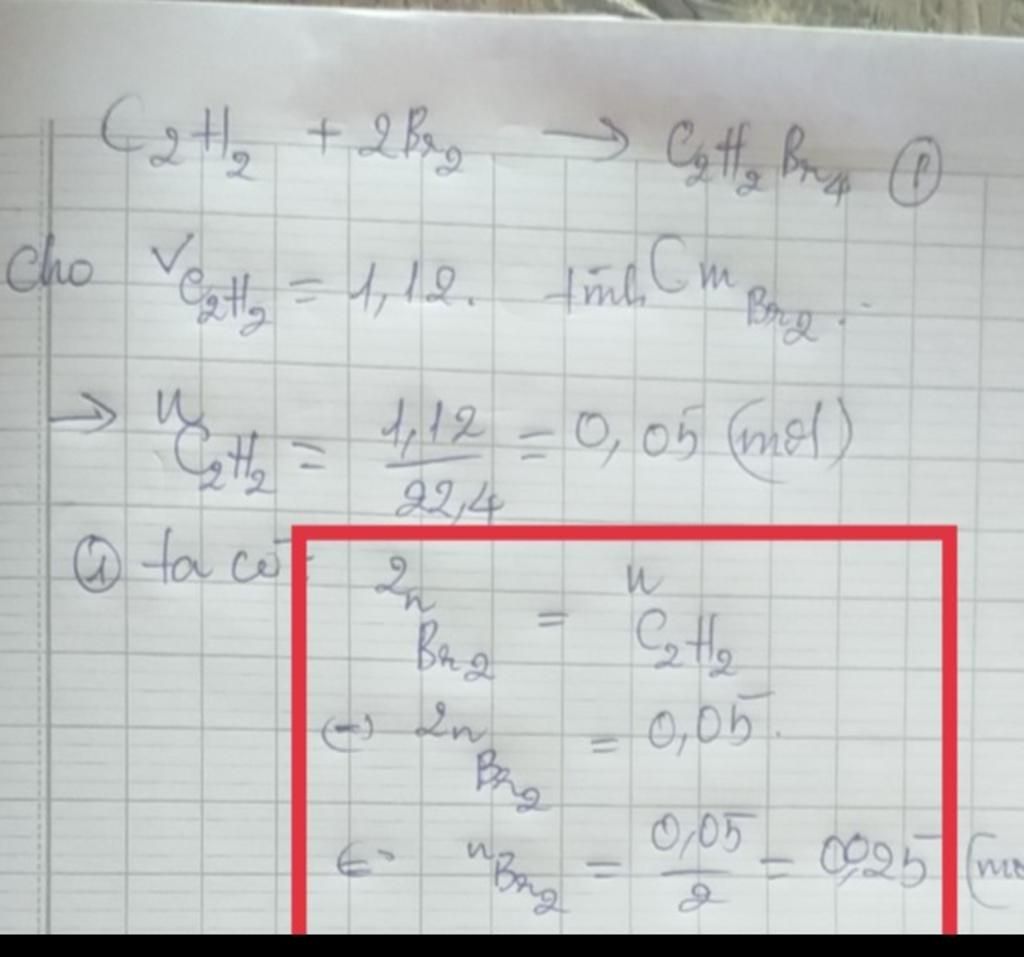 C₂H₂ + 2Br₂ → C₂H₂Br₄ ①
Cho V C₂H₂ = 1,12. tính Cm Br₂.
→ n C₂H₂ = 1,12/22,4 = 0,05 (mol)
① ta có: 2n Br₂ = n C₂H₂
(-) 2n Br₂ = 0,05.
n Br₂ = 0,05/2 = 0,025